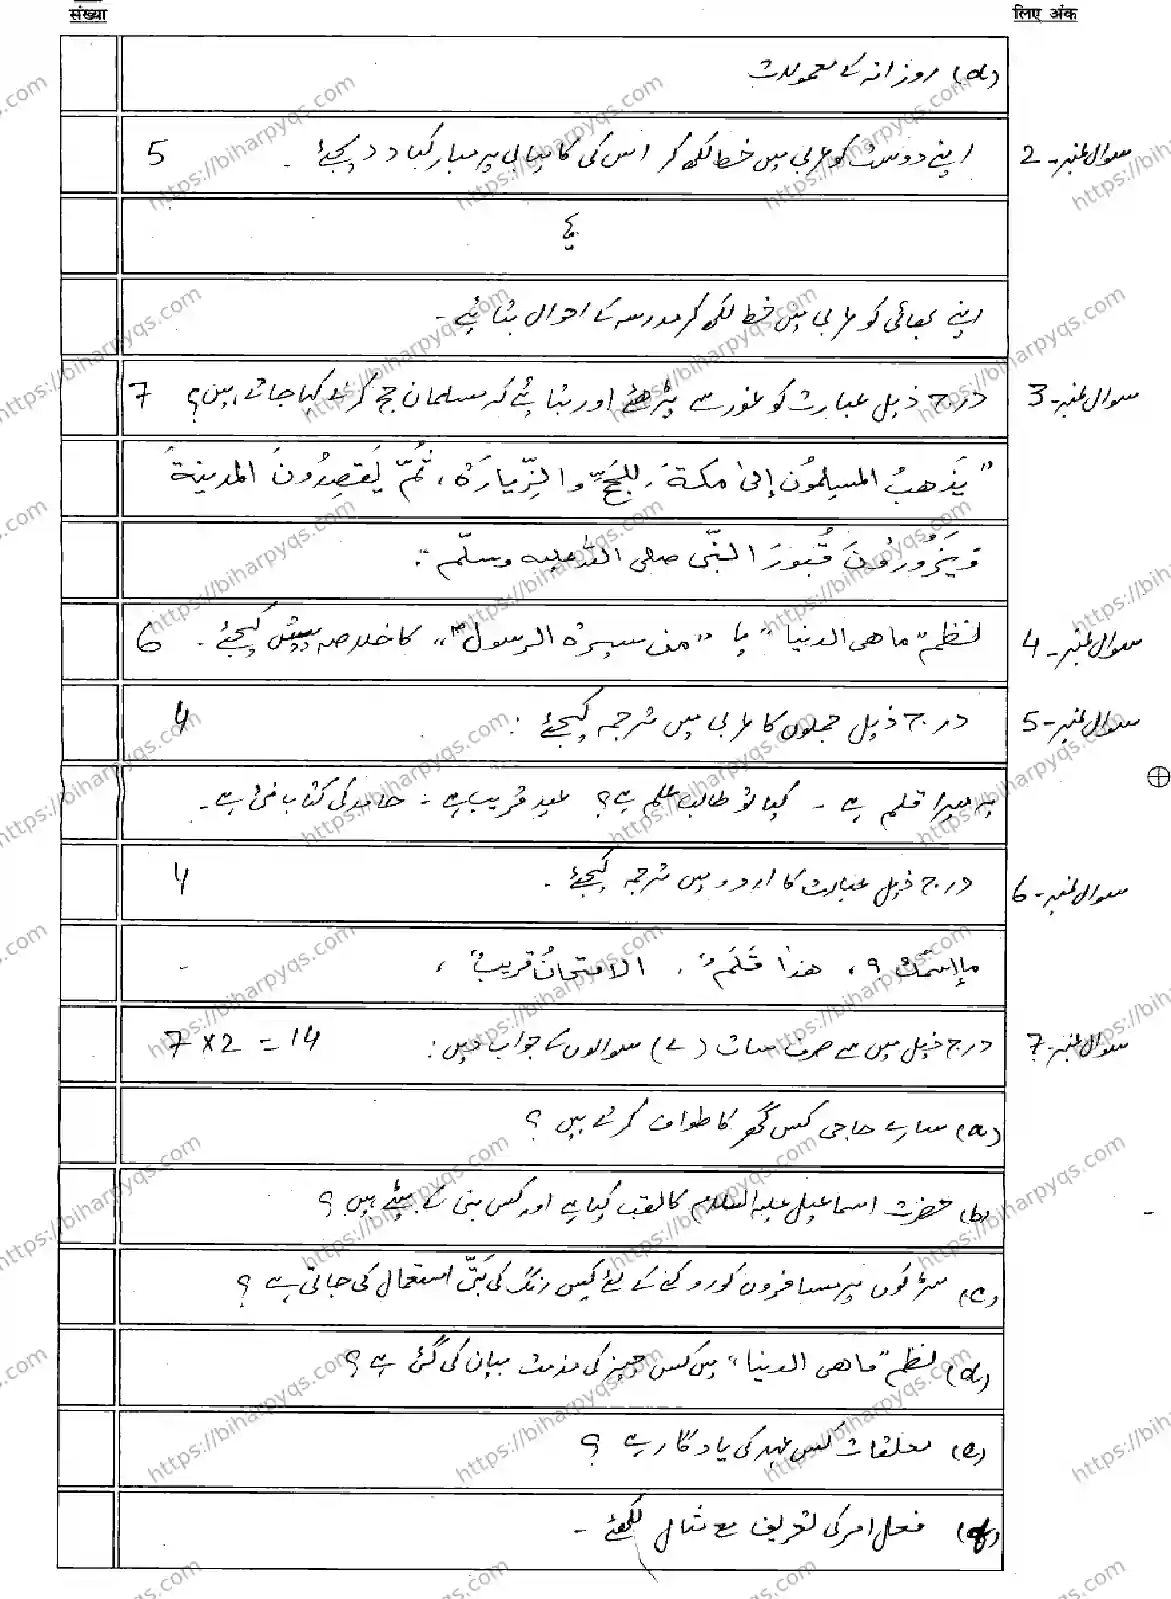 संख्या
लिए अंक
(d) روزانہ کے معمولات
سوال نمبر-2 اپنے دوست کو عربی میں خط لکھ کر اس کی کامیابی پر مبارکباد دیجئے۔ 5
یا
اپنے بھائی کو عربی میں خط لکھ کر مدرسہ کے احوال بتائیے۔
سوال نمبر-3 درج ذیل عبارت کو غور سے پڑھئے اور بتائیے کہ مسلمان حج کرنے کہا جاتے ہیں؟ 7
"يَذهبُ المسلمُون إلىٰ مكةَ للحَجِّ والزِّيارَة، ثُمَّ يَقصِدُونَ المدينةَ
وَيَزُورُونَ قُبُورَ النبّى صلى الله عليه وسلّم":
سوال نمبر-4 نظم "ماهى الدنيا" یا "من سيرة الرسول" کا خلاصہ پیش کیجئے۔ 6
سوال نمبر-5 درج ذیل جملوں کا عربی میں ترجمہ کیجئے: 4
یہ میرا قلم ہے۔ کیا تو طالب علم ہے؟ عید قریب ہے۔ حامد کی کتاب نئی ہے۔
سوال نمبر-6 درج ذیل عبارت کا اردو میں ترجمہ کیجئے۔ 4
ما إسمك؟، هذا قَلَمٌ، الامتحانُ قريبٌ،
سوال نمبر-7 درج ذیل میں سے صرف سات (۷) سوالوں کے جواب دیں: 7×2=14
(a) سارے حاجی کس گھر کا طواف کرتے ہیں؟
(b) حضرت اسماعیل علیہ السلام کا لقب کیا ہے اور کس نبی کے بیٹے ہیں؟
(c) سڑکوں پر مسافروں کو روکنے کے لئے کس رنگ کی بتّی استعمال کی جاتی ہے؟
(d) نظم "ماهى الدنيا" میں کس چیز کی مذمت بیان کی گئی ہے؟
(e) معلقات کس عہد کی یادگار ہے؟
(f) فعل امر کی تعریف مع مثال لکھئے۔
https://biharpyqs.com